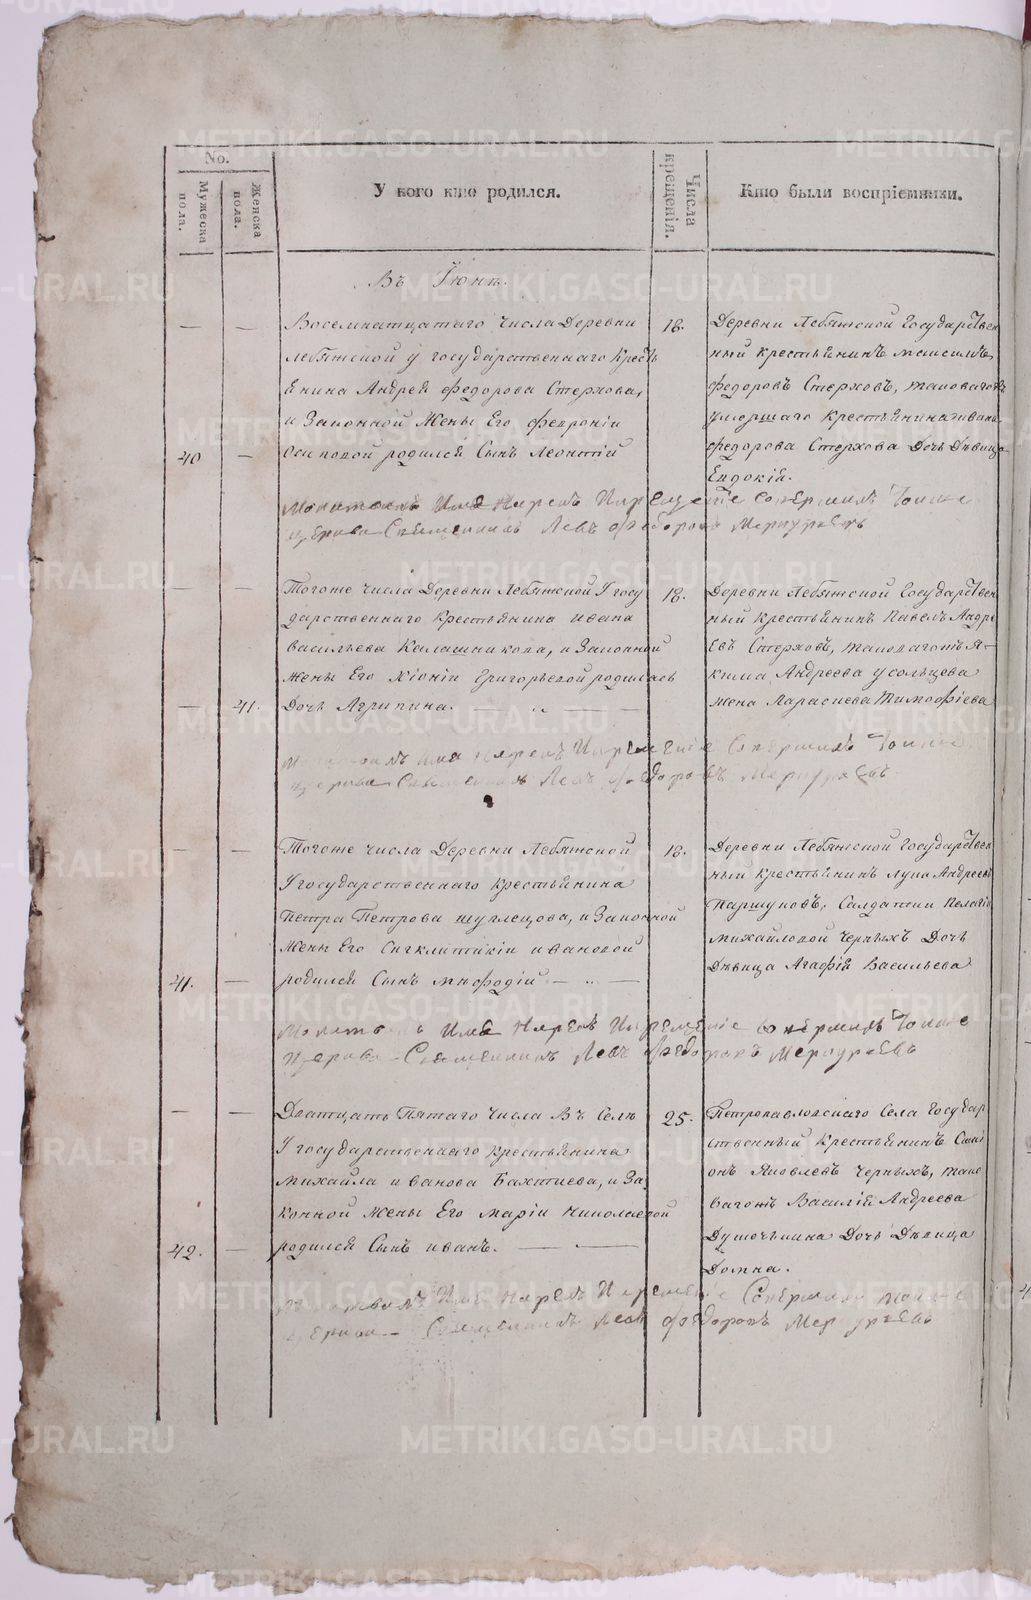 No.
Мужеска пола.
Женска пола.
У кого кто родился.
Числа крещенія.
Кто были воспріемники.
Въ Іюнѣ.
Восемнатцатаго числа Деревни
Лебяжской у государственнаго кресть
янина Андрея Федорова Стерхова,
и Законной Жены Его Февроніи
40 — Осиповой родился Сынъ Леонтій
18.
Деревни Лебяжской Государствен
ный крестьянинъ Максимъ
Федоровъ Стерховъ, таковагожъ
умершаго крестьянина Ивана
Федорова Стерхова Дочь Дѣвица
Евдокія.
Молитвовалъ Имя Нарекъ И крещеніе совершилъ Тоиже
церкви Священникъ Левъ Федоровъ Меркурьевъ
Тогоже числа Деревни Лебяжской У госу
дарственнаго крестьянина Ивана
Васильева Калашникова, и Законной
Жены Его Хіоніи Григорьевой родилась
— 41. Дочь Агрипина. —
18.
Деревни Лебяжской Государствен
ный крестьянинъ Павелъ Андре
евъ Стерховъ, таковагожъ Я-
кима Андреева Усольцева
жена Параскева Тимофіева
Молитвовалъ Имя Нарекъ И крещеніе Совершилъ Тоиже
церкви Священникъ Левъ Федоровъ Меркурьевъ.
Тогоже числа Деревни Лебяжской
У государственнаго крестьянина
Петра Петрова Шуклецова, и Законной
Жены Его Сигклитикіи Ивановой
41. — родился Сынъ Мифодій —
18.
Деревни Лебяжской Государствен
ный крестьянинъ Лука Андреевъ
Паршуковъ, Салдатки Пелагіи
Михайловой Черныхъ Дочь
Дѣвица Агафія Васильева
Молитвовалъ Имя Нарекъ И крещеніе совершилъ Тоиже
Церкви Священникъ Левъ Федоровъ Меркурьевъ
Дватцать Пятаго числа Въ Селѣ
У государственнаго крестьянина
Михайла Иванова Бахтиева, и За
конной Жены Его Маріи Николаевой
42. — родился Сынъ Иванъ. —
25.
Петропавловскаго Села Государ
ственный крестьянинъ Симі
онъ Яковлевъ Черныхъ, тако
вагожъ Василія Андреева
Душочькина Дочь Дѣвица
Домна.
Молитвовалъ Имя Нарекъ И крещеніе Совершилъ тоиже
церкви Священникъ Левъ Федоровъ Меркурьевъ
METRIKI.GASO-URAL.RU